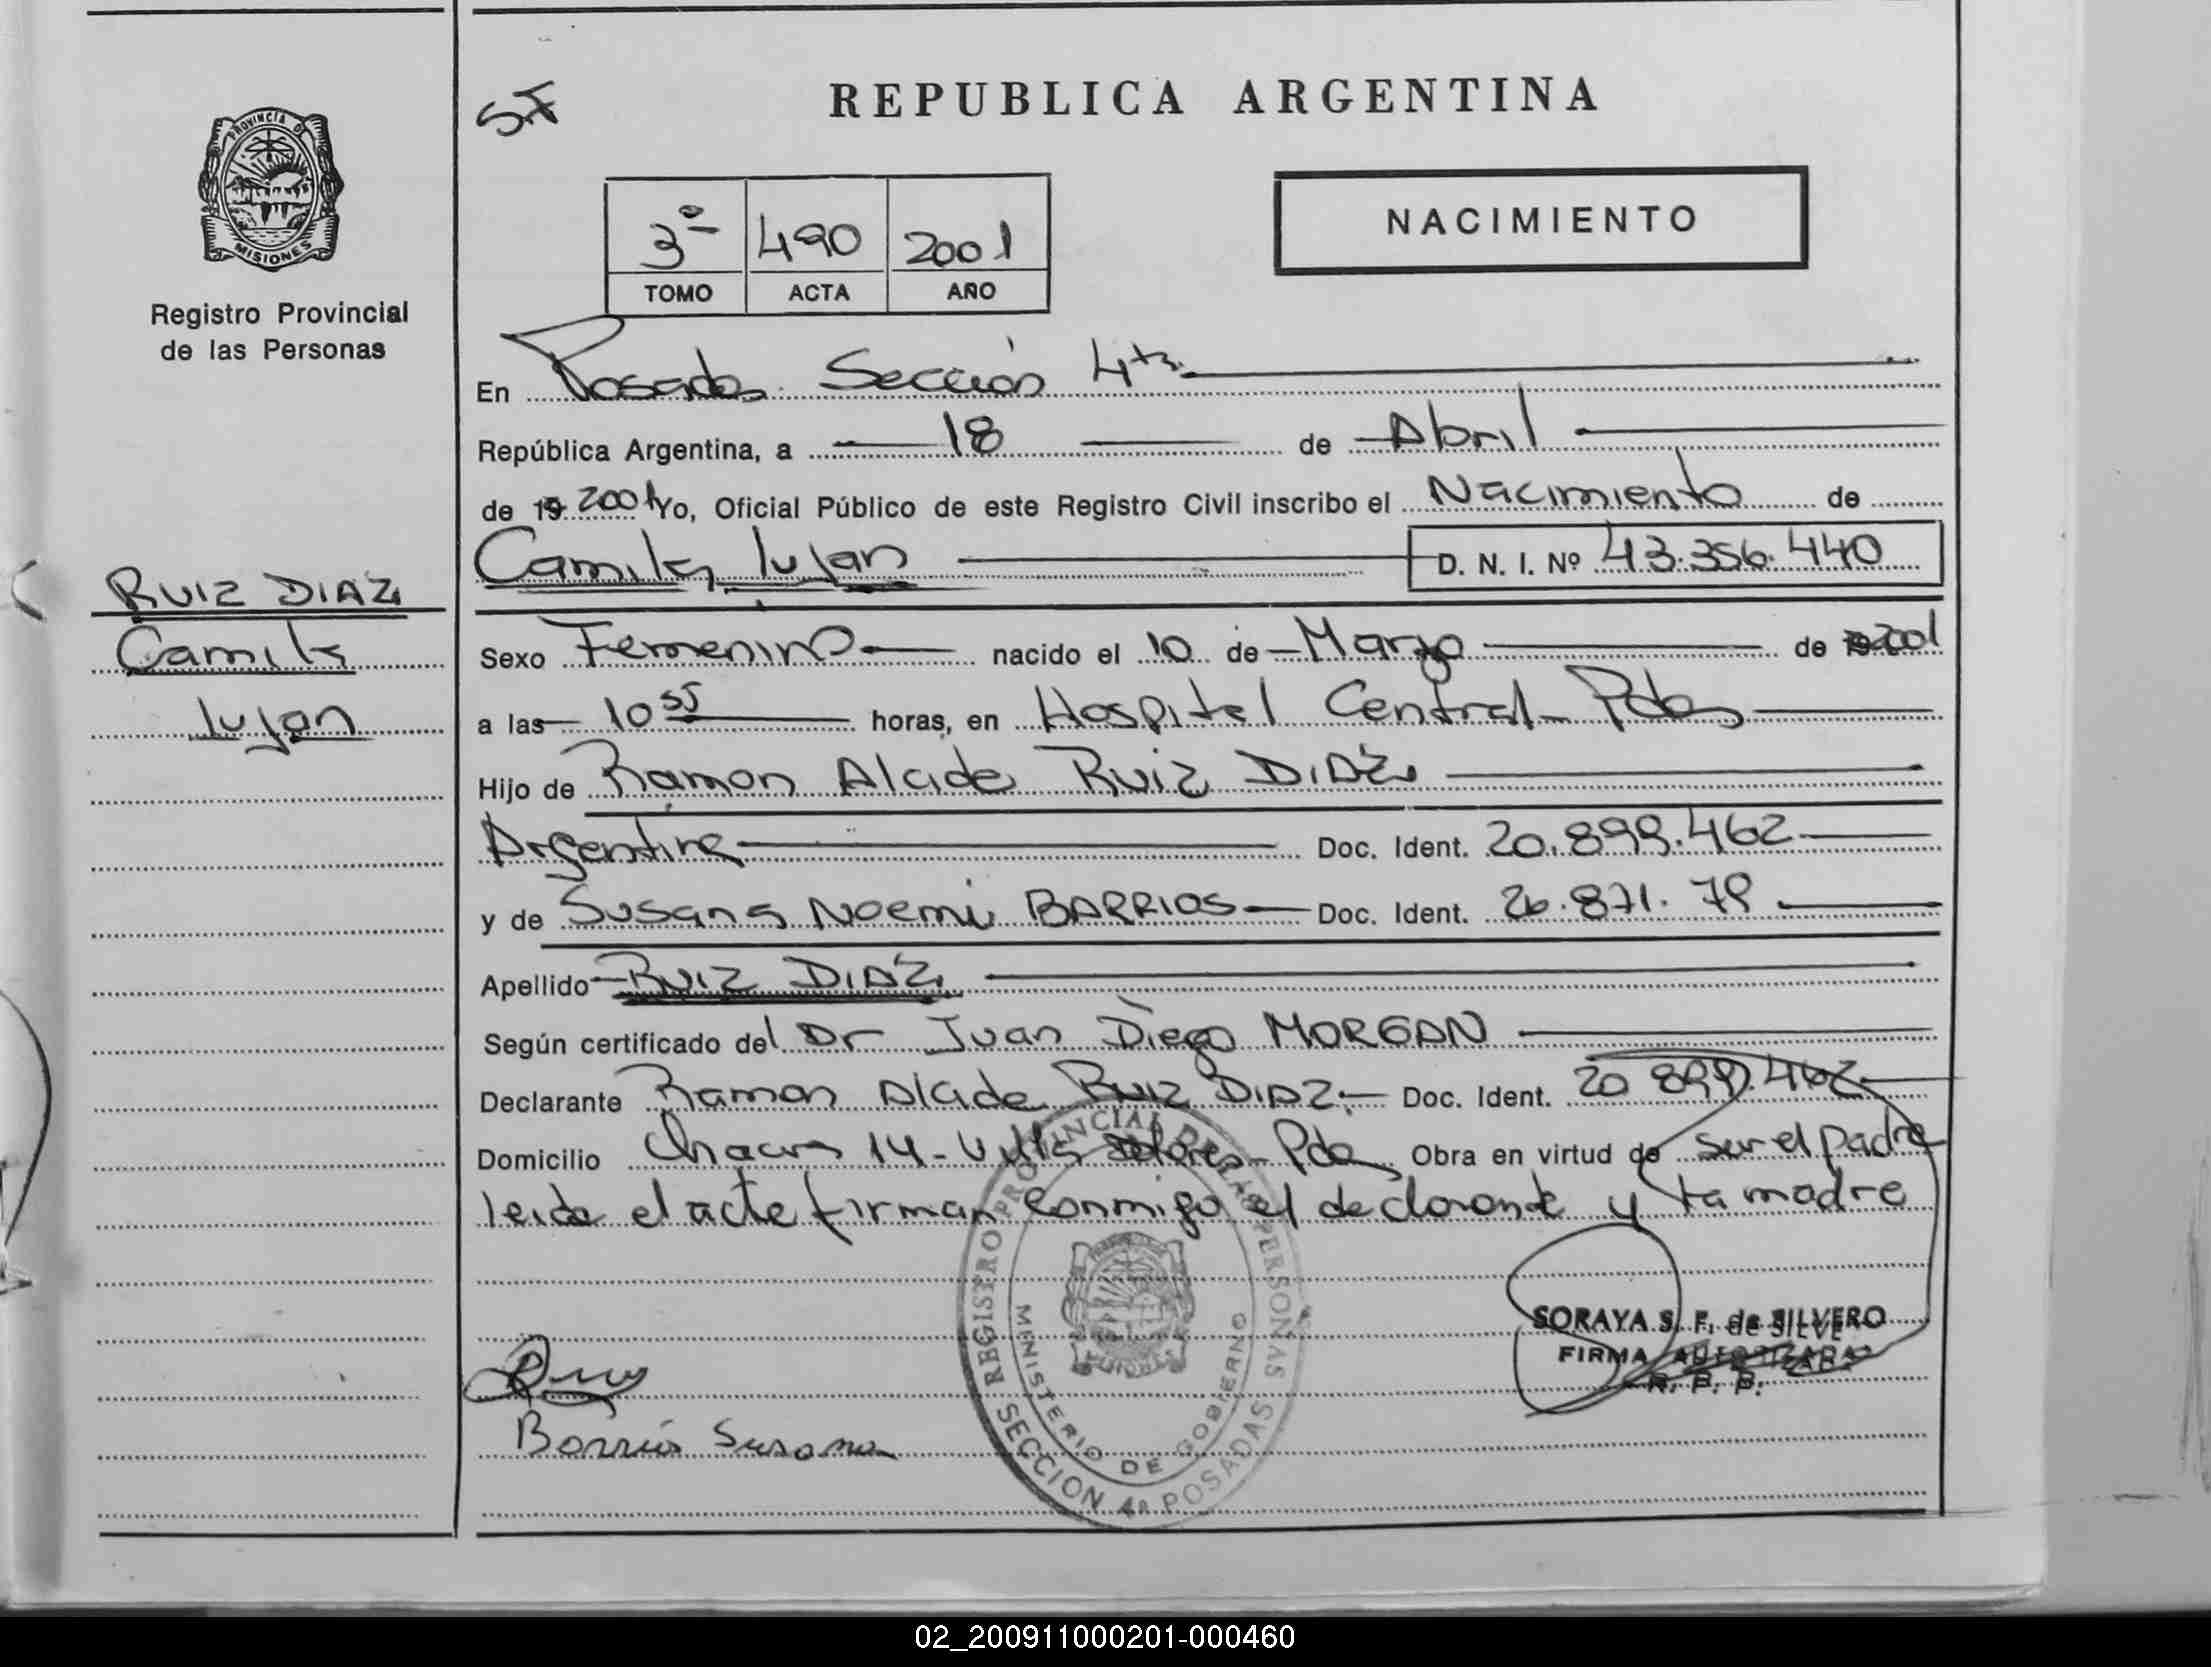 REPUBLICA ARGENTINA
PROVINCIA D
MISIONES
Registro Provincial
de las Personas
3º 490 2001
TOMO ACTA AÑO
NACIMIENTO
En Posadas Sección 4ta
República Argentina, a 18 de Abril
de 19 2001 Yo, Oficial Público de este Registro Civil inscribo el Nacimiento de
Camila Lujan D. N. I. Nº 43.356.440
RUIZ DIAZ
Camila
Lujan
Sexo Femenino nacido el 10 de Marzo de 2001
a las 10 55 horas, en Hospital Central Pdas
Hijo de Ramon Alcide RUIZ DIAZ
Argentina Doc. Ident. 20.899.462
y de Susana Noemi BARRIOS Doc. Ident. 26.871.
Apellido RUIZ DIAZ
Según certificado del Dr Juan Diego MORGAN
Declarante Ramon Alcide RUIZ DIAZ.- Doc. Ident. 20 899.462
Domicilio Chacra 14 - Villa Dolores - Pdas Obra en virtud de ser el padre
leida el acta firman conmigo el declarante y la madre
REGISTRO PROVINCIAL DE LAS PERSONAS
MINISTERIO DE GOBIERNO
SECCION 4ª POSADAS
SORAYA S. F. de SILVERO
FIRMA AUTORIZADA
R. P. P.
Barrios Susana
02_200911000201-000460